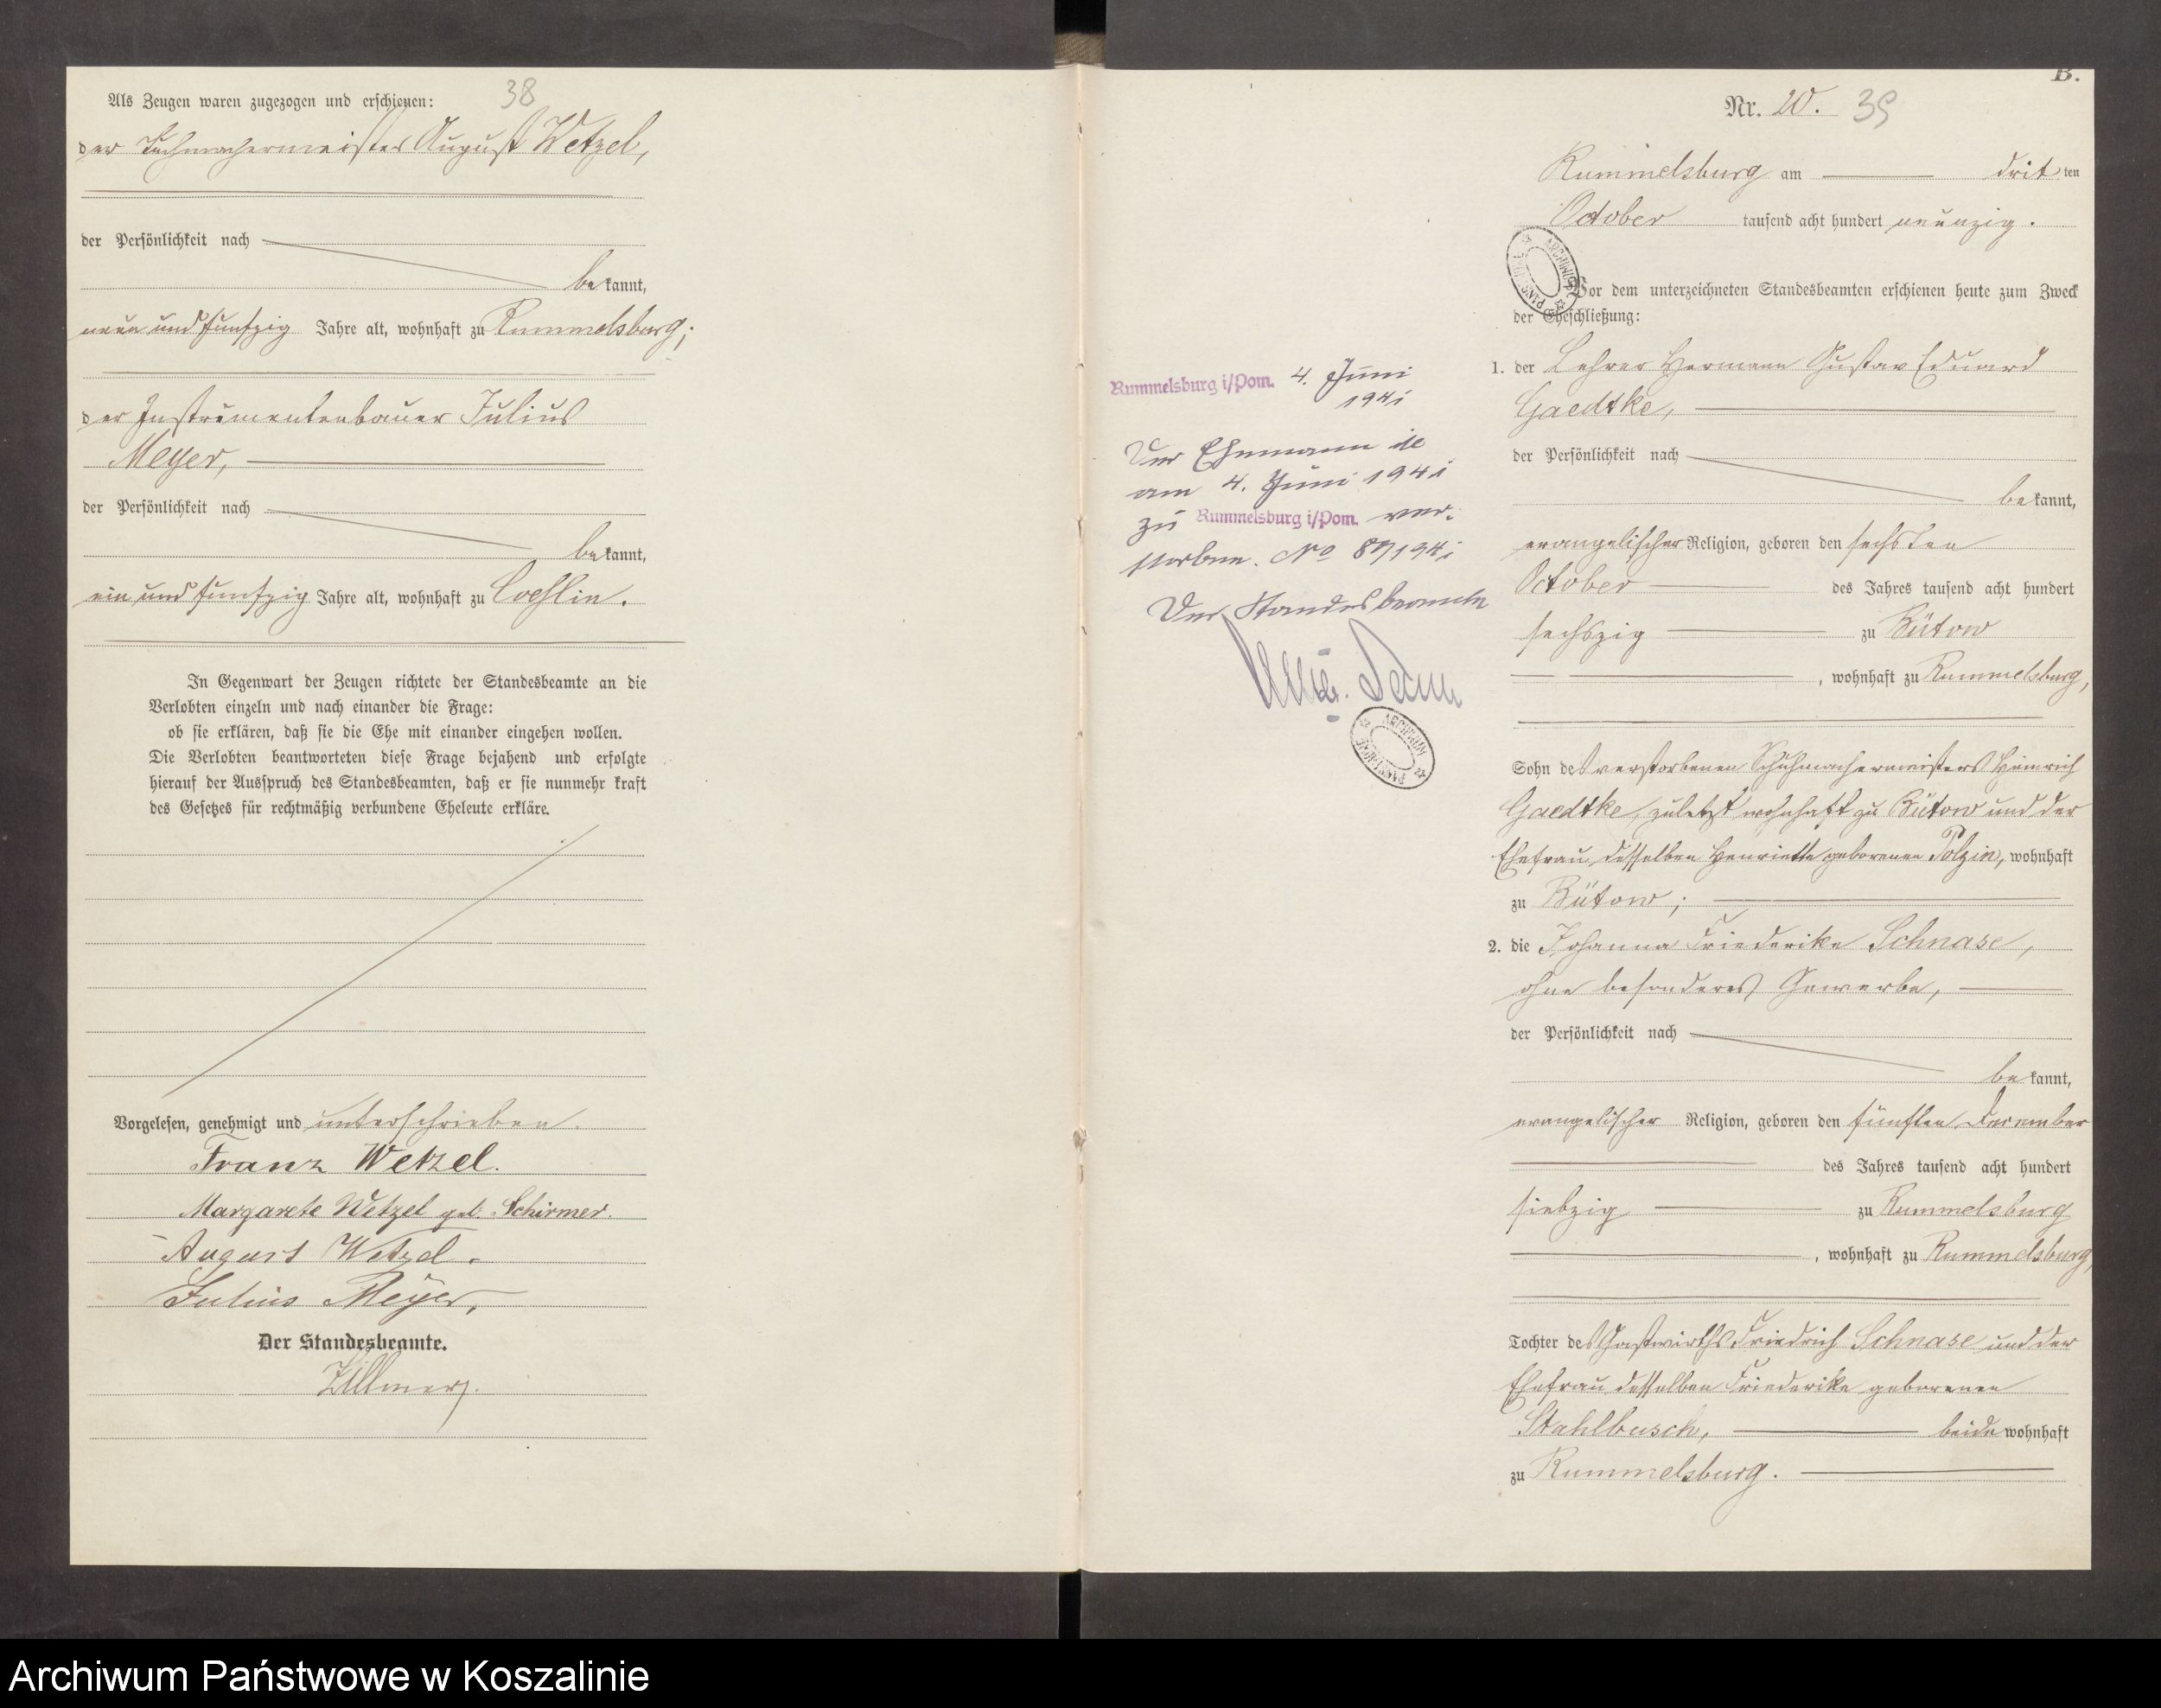 38
Als Zeugen waren zugezogen und erschienen:
der Tuchmachermeister August Wetzel,
der Persönlichkeit nach
bekannt,
neun und fünfzig Jahre alt, wohnhaft zu Rummelsburg;
der Instrumentenbauer Julius
Meyer,
der Persönlichkeit nach
bekannt,
ein und fünfzig Jahre alt, wohnhaft zu Coeslin.
In Gegenwart der Zeugen richtete der Standesbeamte an die
Verlobten einzeln und nach einander die Frage:
ob sie erklären, daß sie die Ehe mit einander eingehen wollen.
Die Verlobten beantworteten diese Frage bejahend und erfolgte
hierauf der Ausspruch des Standesbeamten, daß er sie nunmehr kraft
des Gesetzes für rechtmäßig verbundene Eheleute erkläre.
Vorgelesen, genehmigt und unterschrieben.
Franz Wetzel.
Margarete Wetzel geb. Schirmer.
August Wetzel.
Julius Meyer,
Der Standesbeamte.
Zillmer
Rummelsburg i/Pom. 4. Juni
1941
Der Ehemann ist
am 4. Juni 1941
zu Rummelsburg i/Pom. ver-
storben. No 87/1941
Der Standesbeamte
ARCHIWUM PAŃSTWOWE
B.
Nr. 20. 39
Rummelsburg am dritten
October tausend acht hundert neunzig.
ARCHIWUM PAŃSTWOWE
Vor dem unterzeichneten Standesbeamten erschienen heute zum Zweck
der Eheschließung:
1. der Lehrer Hermann Gustav Eduard
Gaedtke,
der Persönlichkeit nach
bekannt,
evangelischer Religion, geboren den sechsten
October des Jahres tausend acht hundert
sechszig zu Bütow
, wohnhaft zu Rummelsburg,
Sohn des verstorbenen Schuhmachermeisters Heinrich
Gaedtke, zuletzt wohnhaft zu Bütow und der
Ehefrau desselben Henriette geborenen Polzin, wohnhaft
zu Bütow;
2. die Johanna Friederike Schnase,
ohne besonderes Gewerbe,
der Persönlichkeit nach
bekannt,
evangelischer Religion, geboren den fünften December
des Jahres tausend acht hundert
siebzig zu Rummelsburg
, wohnhaft zu Rummelsburg,
Tochter des Gastwirths Friedrich Schnase und der
Ehefrau desselben Friederike geborenen
Stahlbusch, beide wohnhaft
zu Rummelsburg.
Archiwum Państwowe w Koszalinie